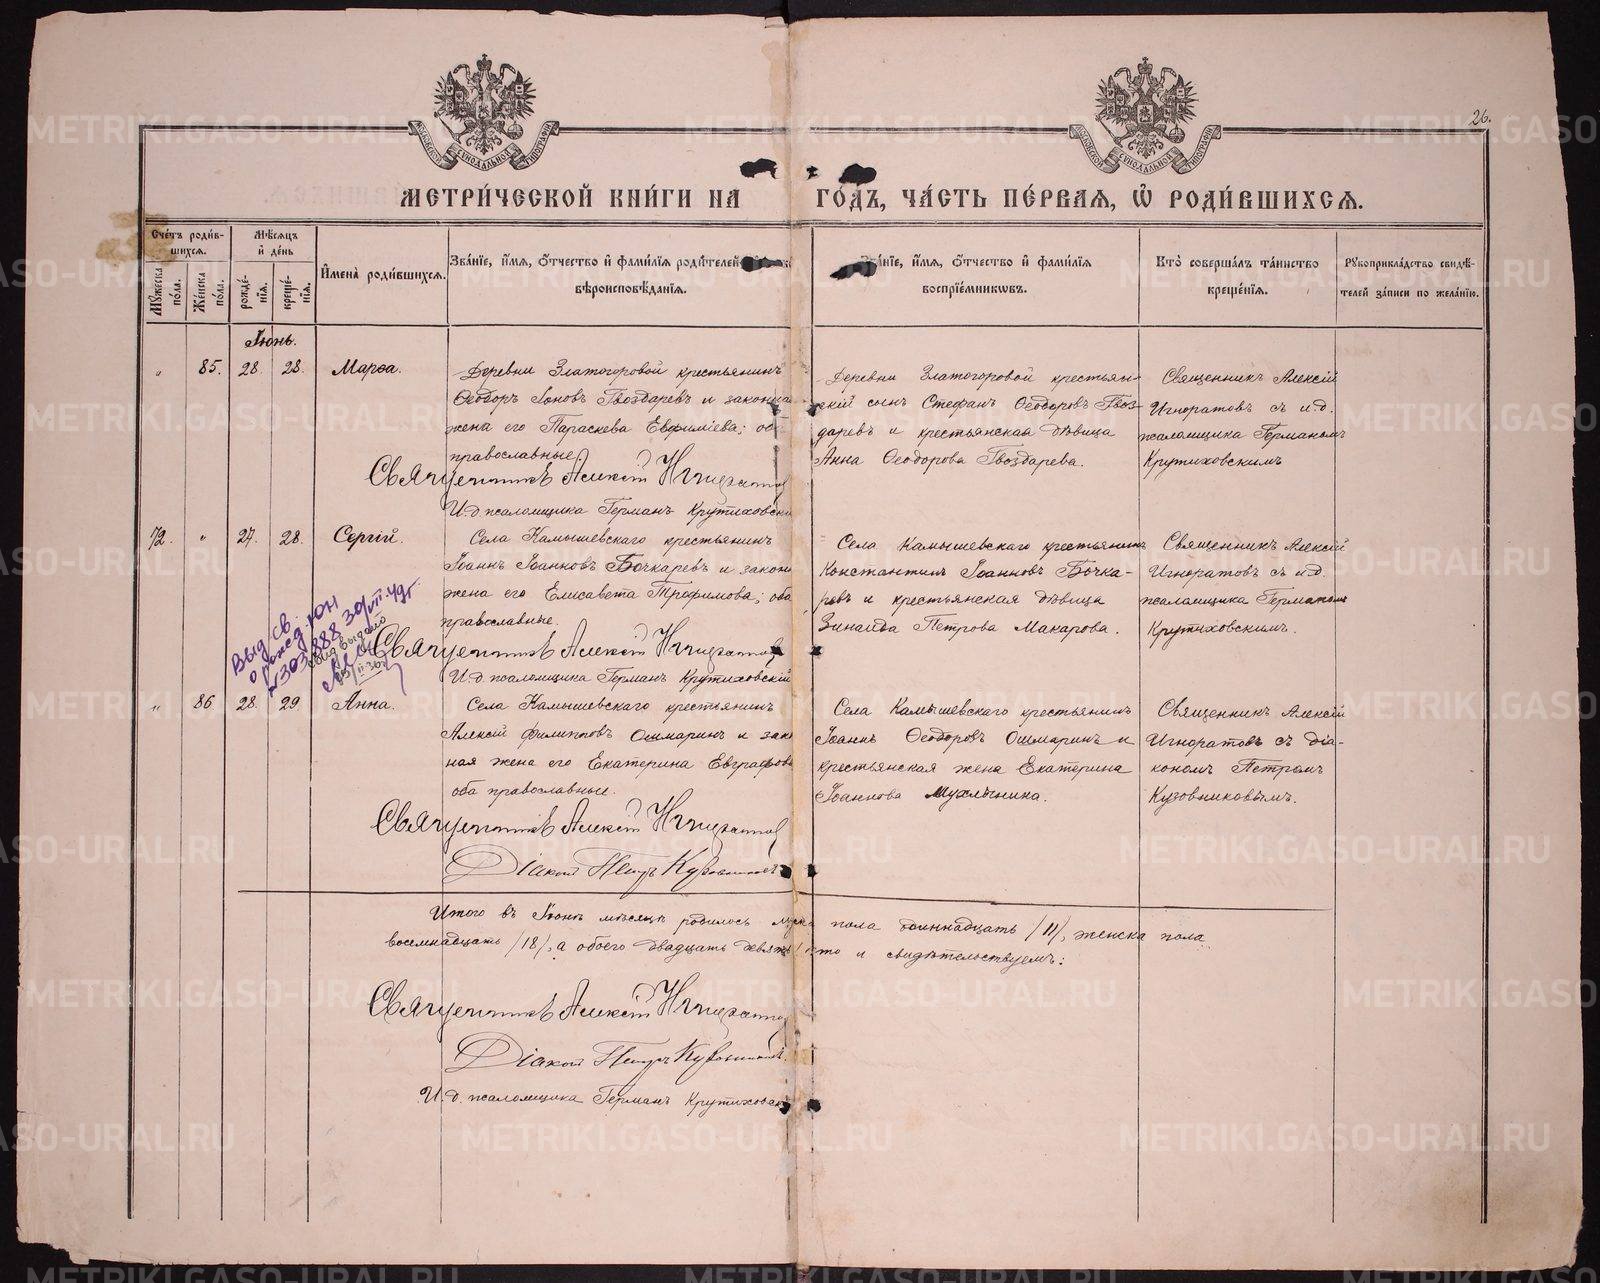 26.
МОСКОВСКОЙ СУНОДАЛЬНОЙ ТИПОГРАФІИ
МОСКОВСКОЙ СУНОДАЛЬНОЙ ТИПОГРАФІИ
МЕТРИ́ЧЕСКОЙ КНИ́ГИ НА ГО́ДЪ, ЧА́СТЬ ПЕ́РВАЯ, Ѡ҆ РОДИ́ВШИХСѦ.
Сче́тъ роди́в-
шихсѧ.
Мꙋ́жеска по́ла.
Же́нска по́ла.
Мѣ́сѧцъ
и҆ де́нь
рожде́-
нїѧ.
креще́-
нїѧ.
И҆мена̀ роди́вшихсѧ.
Зва́нїе, и҆́мѧ, ѻ҆́тчество и҆ фами́лїѧ роди́телей
вѣроисповѣ́данїѧ.
Зва́нїе, и҆́мѧ, ѻ҆́тчество и҆ фами́лїѧ
воспрїе́мникѡвъ.
Кто̀ соверша́лъ та́инство
креще́нїѧ.
Рꙋкоприкла́дство свидѣ́-
телей за́писи по жела́нїю.
Іюнь.
„ 85. 28. 28. Марѳа.
Деревни Златогоровой крестьянинъ
Ѳеодоръ Іоновъ Гвоздаревъ и законна
жена его Параскева Евфиміева; оба
православные.
Священникъ Алексій Игноратов
И. д. псаломщика Германъ Крутиховскі
Деревни Златогоровой крестьян-
скій сынъ Стефанъ Ѳеодоровъ Гвоз-
даревъ и крестьянская дѣвица
Анна Ѳеодорова Гвоздарева.
Священникъ Алексій
Игноратовъ съ и. д.
псаломщика Германомъ
Крутиховскимъ
72. „ 27. 28. Сергій.
Села Камышевскаго крестьянинъ
Іоаннъ Іоанновъ Бочкаревъ и законн
жена его Елисавета Трофимова; оба
православные.
Священникъ Алексій Игноратов
И. д. псаломщика Германъ Крутиховскій
Села Камышевскаго крестьянинъ
Константинъ Іоанновъ Бочка-
ревъ и крестьянская дѣвица
Зинаида Петрова Макарова.
Священникъ Алексій
Игноратовъ съ и. д.
псаломщика Германомъ
Крутиховскимъ.
Выд. св.
о рожд. ЮН
№ 303888 30/VII-49г.
„ 86 28. 29 Анна.
Села Камышевскаго крестьянинъ
Алексій Филипповъ Ошмаринъ и зако
ная жена его Екатерина Евграфова
оба православные.
Священникъ Алексій Игноратов
Діаконъ Петръ Кузовниковъ
Села Камышевскаго крестьянинъ
Іоаннъ Ѳеодоровъ Ошмаринъ и
крестьянская жена Екатерина
Іоаннова Мухлынина.
Священникъ Алексій
Игноратовъ съ діа-
кономъ Петромъ
Кузовниковымъ.
Итого въ Іюнѣ мѣсяцѣ родилось мужска пола одиннадцать /11/, женска пола
восемнадцать /18/, а обоего двадцать девять что и свидѣтельствуемъ:
Священникъ Алексій Игноратов
Діаконъ Петръ Кузовниковъ.
И. д. псаломщика Германъ Крутиховскі
METRIKI.GASO-URAL.RU